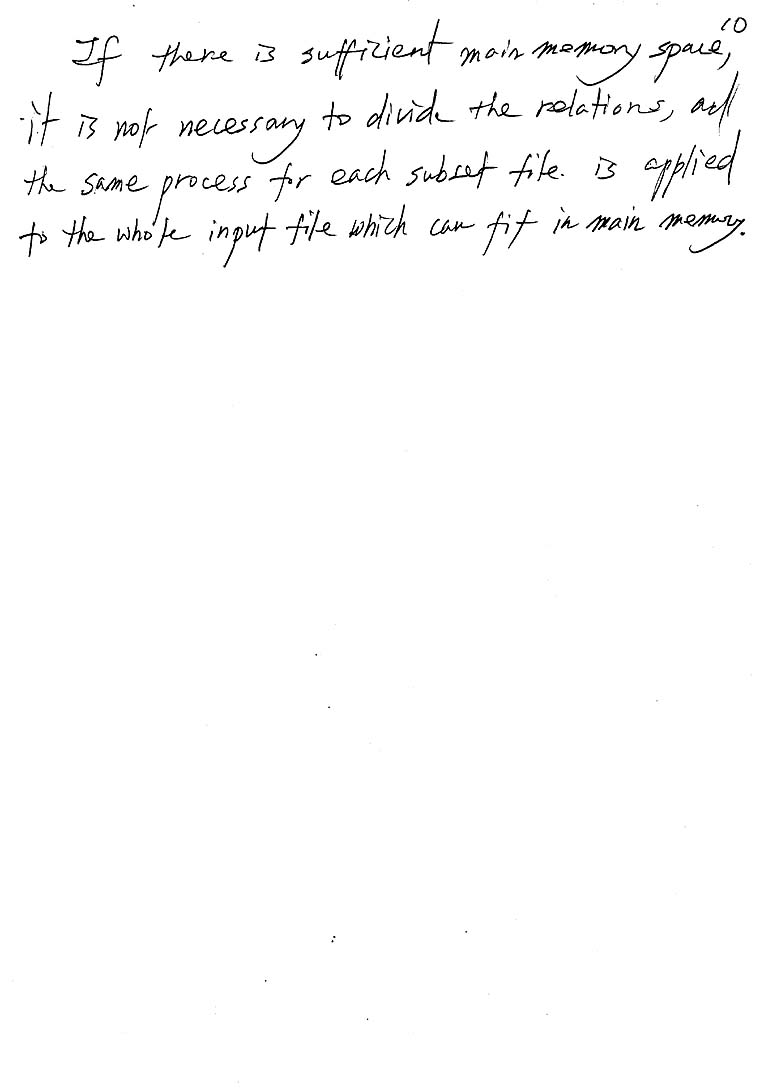 10
If there is sufficient main memory space,
it is not necessary to divide the relations, and
the same process for each subset file. is applied
to the whole input file which can fit in main memory.